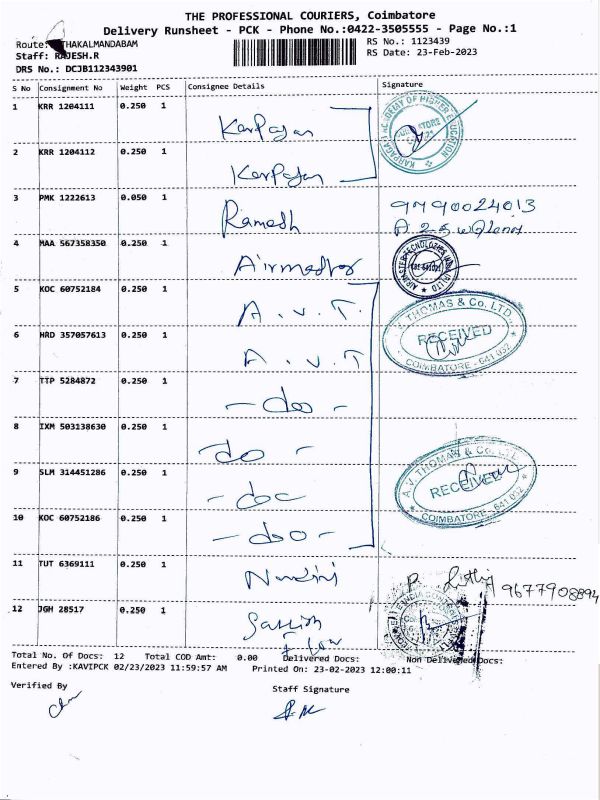 THE PROFESSIONAL COURIERS, Coimbatore
Delivery Runsheet - PCK - Phone No.:0422-3505555 - Page No.:1
Route: THAKALMANDABAM RS No.: 1123439
Staff: RAJESH.R RS Date: 23-Feb-2023
DRS No.: DCJB112343901
S No Consignment No Weight PCS Consignee Details Signature
1 KRR 1204111 0.250 1 Karpagam
KARPAGAM ACADEMY OF HIGHER EDUCATION
2 KRR 1204112 0.250 1 Karpagam
3 PMK 1222613 0.050 1 Ramesh 9790024013
4 MAA 567358350 0.250 1
5 KOC 60752184 0.250 1 A.V.T.
A.V. THOMAS & Co. LTD.,
RECEIVED
COIMBATORE - 641 032
6 HRD 357057613 0.250 1 A.V.T
7 TTP 5284872 0.250 1 - do -
8 IXM 503138630 0.250 1 do -
9 SLM 314451286 0.250 1 - do
A.V. THOMAS & Co. LTD.,
RECEIVED
COIMBATORE - 641 032
10 KOC 60752186 0.250 1 - do -
11 TUT 6369111 0.250 1 Nandini 9677908894
12 JGH 28517 0.250 1 Sathish
Flow
Total No. Of Docs: 12 Total COD Amt: 0.00 Delivered Docs: Non Delivered Docs:
Entered By :KAVIPCK 02/23/2023 11:59:57 AM Printed On: 23-02-2023 12:00:11
Verified By Staff Signature